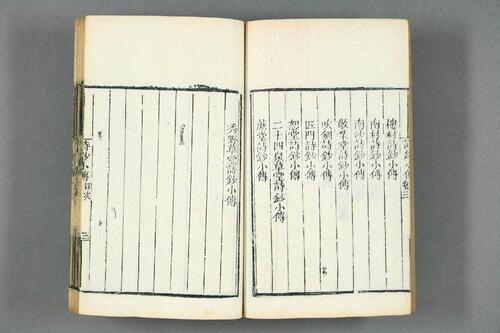 樓村詩鈔小傳
南村詩鈔小傳
南沙詩鈔小傳
敬業堂詩鈔小傳
吹劍詩鈔小傳
匠門詩鈔小傳
恕堂詩鈔小傳
二十四泉草堂詩鈔小傳
蔗堂詩鈔小傳
秀野草堂詩鈔小傳
詩鈔小傳目次
三